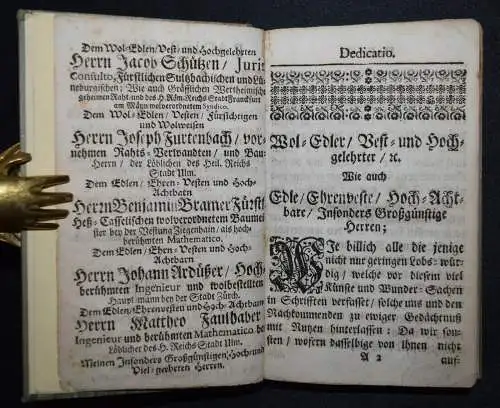 Dem Wol-Edlen/Vest- und Hochgelehrten
Herrn Jacob Schützen/ Juris
Consulto, Fürstlichen Sultzbachischen und Lü-
neburgischen; Wie auch Gräflichen Wertheimischē
geheimen Raht- und des H. Röm. Reichs Stadt Franckfurt
am Mäyn wolverordnetem Syndico.
Dem Wol-Edlen/ Vesten/ Fürsichtigen
und Wolweisen
Herrn Joseph Furtenbach/ vor-
nehmen Rahts-Verwandten/ und Bau-
Herrn/ der Löblichen des Heil. Reichs
Stadt Ulm.
Dem Edlen/ Ehren-Vesten und Hoch-
Achtbarn
Herrn Benjamin Bramer Fürstl.
Heß-Casselischen wolverordnetem Baumei-
ster bey der Vestung Ziegenhain/ als hoch-
berühmten Mathematico.
Dem Edlen/ Ehren-Vesten und Hoch-
Achtbarn
Herrn Johann Ardüßer/ Hoch-
berühmten Ingenieur und wolbestellten
Hauptmann bey der Stadt Zürch.
Dem Edlen/ Ehrenvesten und Hoch-Achtbarn
Herrn Mattheo Faulhaber/
Ingenieur und berühmten Mathematico bey
Löblicher des H. Reichs Stadt Ulm.
Meinen Insonders Großgünstigen/ Hoch- und
Viel-geehrten Herren.
Dedicatio.
Wol-Edler/ Vest- und Hoch-
gelehrter/ ꝛc.
Wie auch
Edle/ Ehrenveste/ Hoch-Acht-
bare/ Insonders Großgünstige
Herren;
Wie billich alle die jenige
nicht nur geringen Lobs-wür-
dig/ welche vor diesem viel
Künste und Wunder-Sachen
in Schrifften verfasset/ solche uns und den
Nachkommenden zu ewiger Gedächtnuß
mit Nutzen hinterlassen: Da wir son-
sten/ wofern dasselbige von Ihnen nicht
A 2 auf: